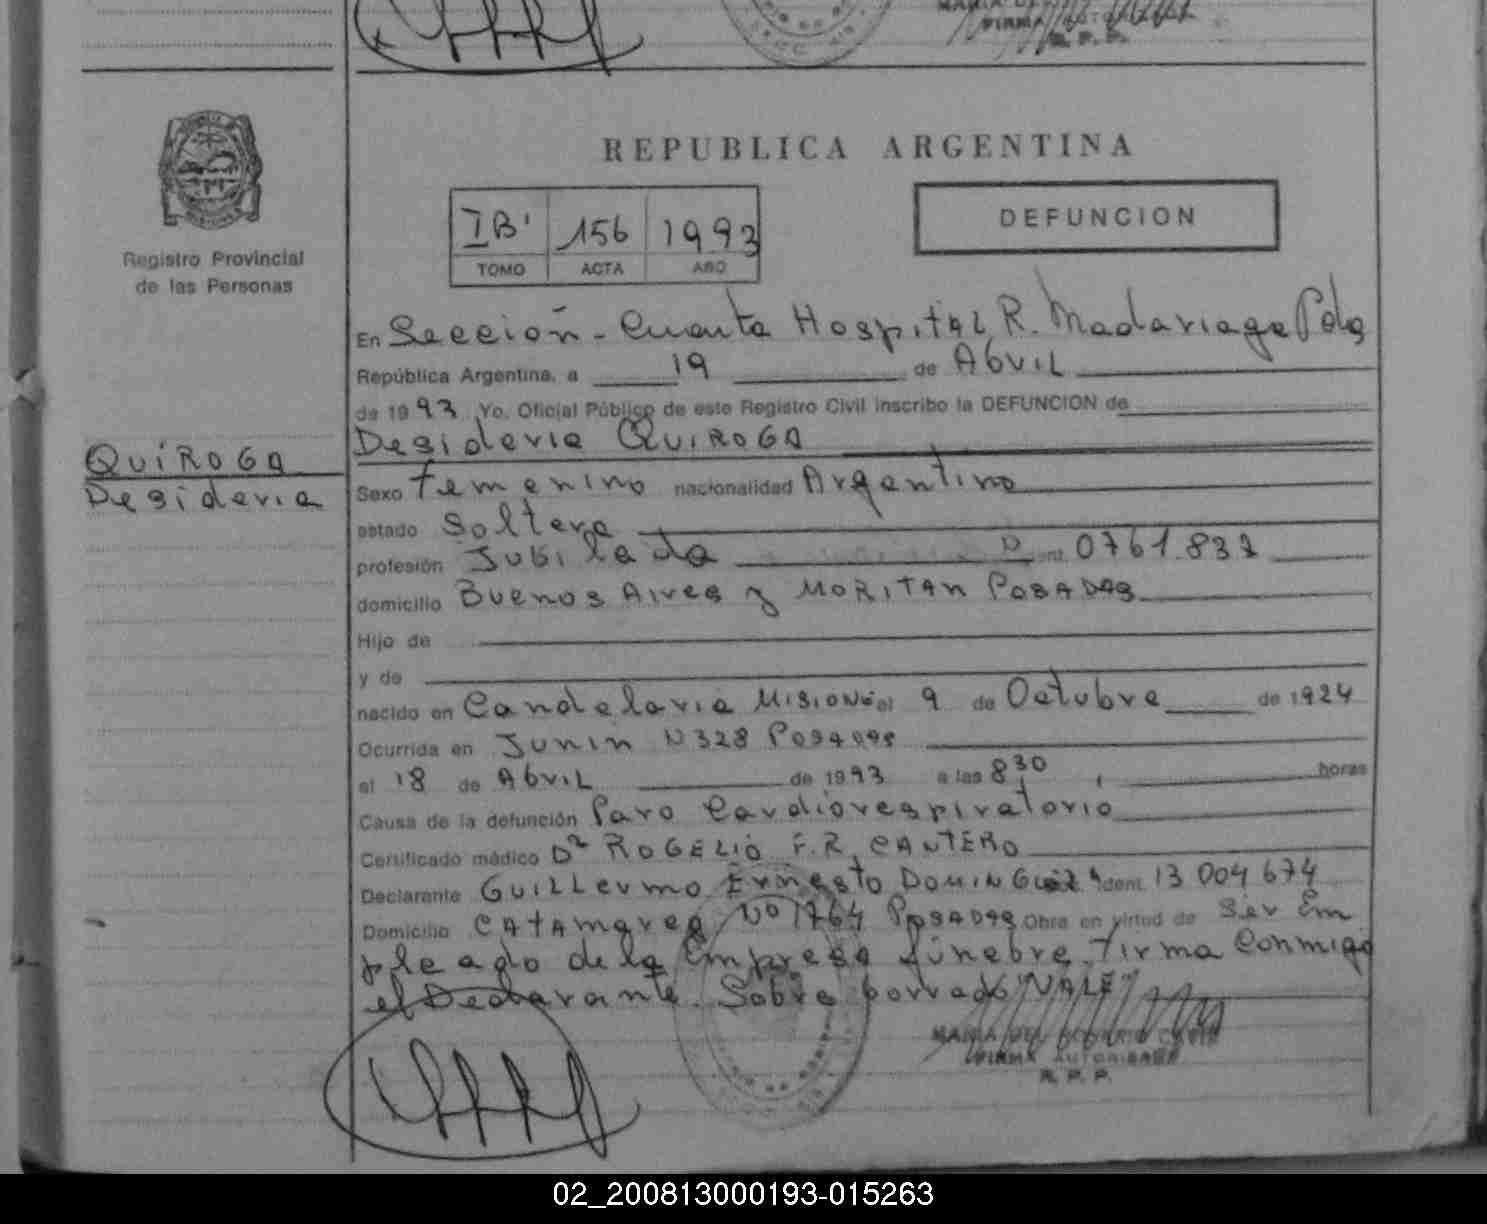 FIRMA
R. P. P.
REPUBLICA ARGENTINA
IB' 156 1993
TOMO ACTA AÑO
DEFUNCION
Registro Provincial
de las Personas
En Sección - Cuarta Hospital R. Madariaga Pdas
República Argentina, a 19 de Abril
de 1993 Yo, Oficial Público de este Registro Civil inscribo la DEFUNCION de
Desideria QUIROGA
QUIROGA
Desideria
Sexo Femenino nacionalidad Argentina
estado Soltera
profesión Jubilada ent. 0761.837
domicilio Buenos Aires y MORITAN POSADAS
Hijo de
y de
nacido en Candelaria Misiones el 9 de Octubre de 1924
Ocurrida en Junin N 328 Posadas
el 18 de Abril de 1993 a las 830 horas
Causa de la defunción Paro Cardiorespiratorio
Certificado médico Dr ROGELIO F.R. CANTERO
Declarante GUILLermo Ernesto DOMINGUEZ ident. 13 004 674
Domicilio CATAmarca Nº 1764 POSADAS Obra en virtud de Ser Em
pleado de la Empresa fúnebre. Firma Conmigo
el Declarante. Sobre borrado "VALE"
MARIA DEL
FIRMA AUTORIZADA
R. P. P.
02_200813000193-015263